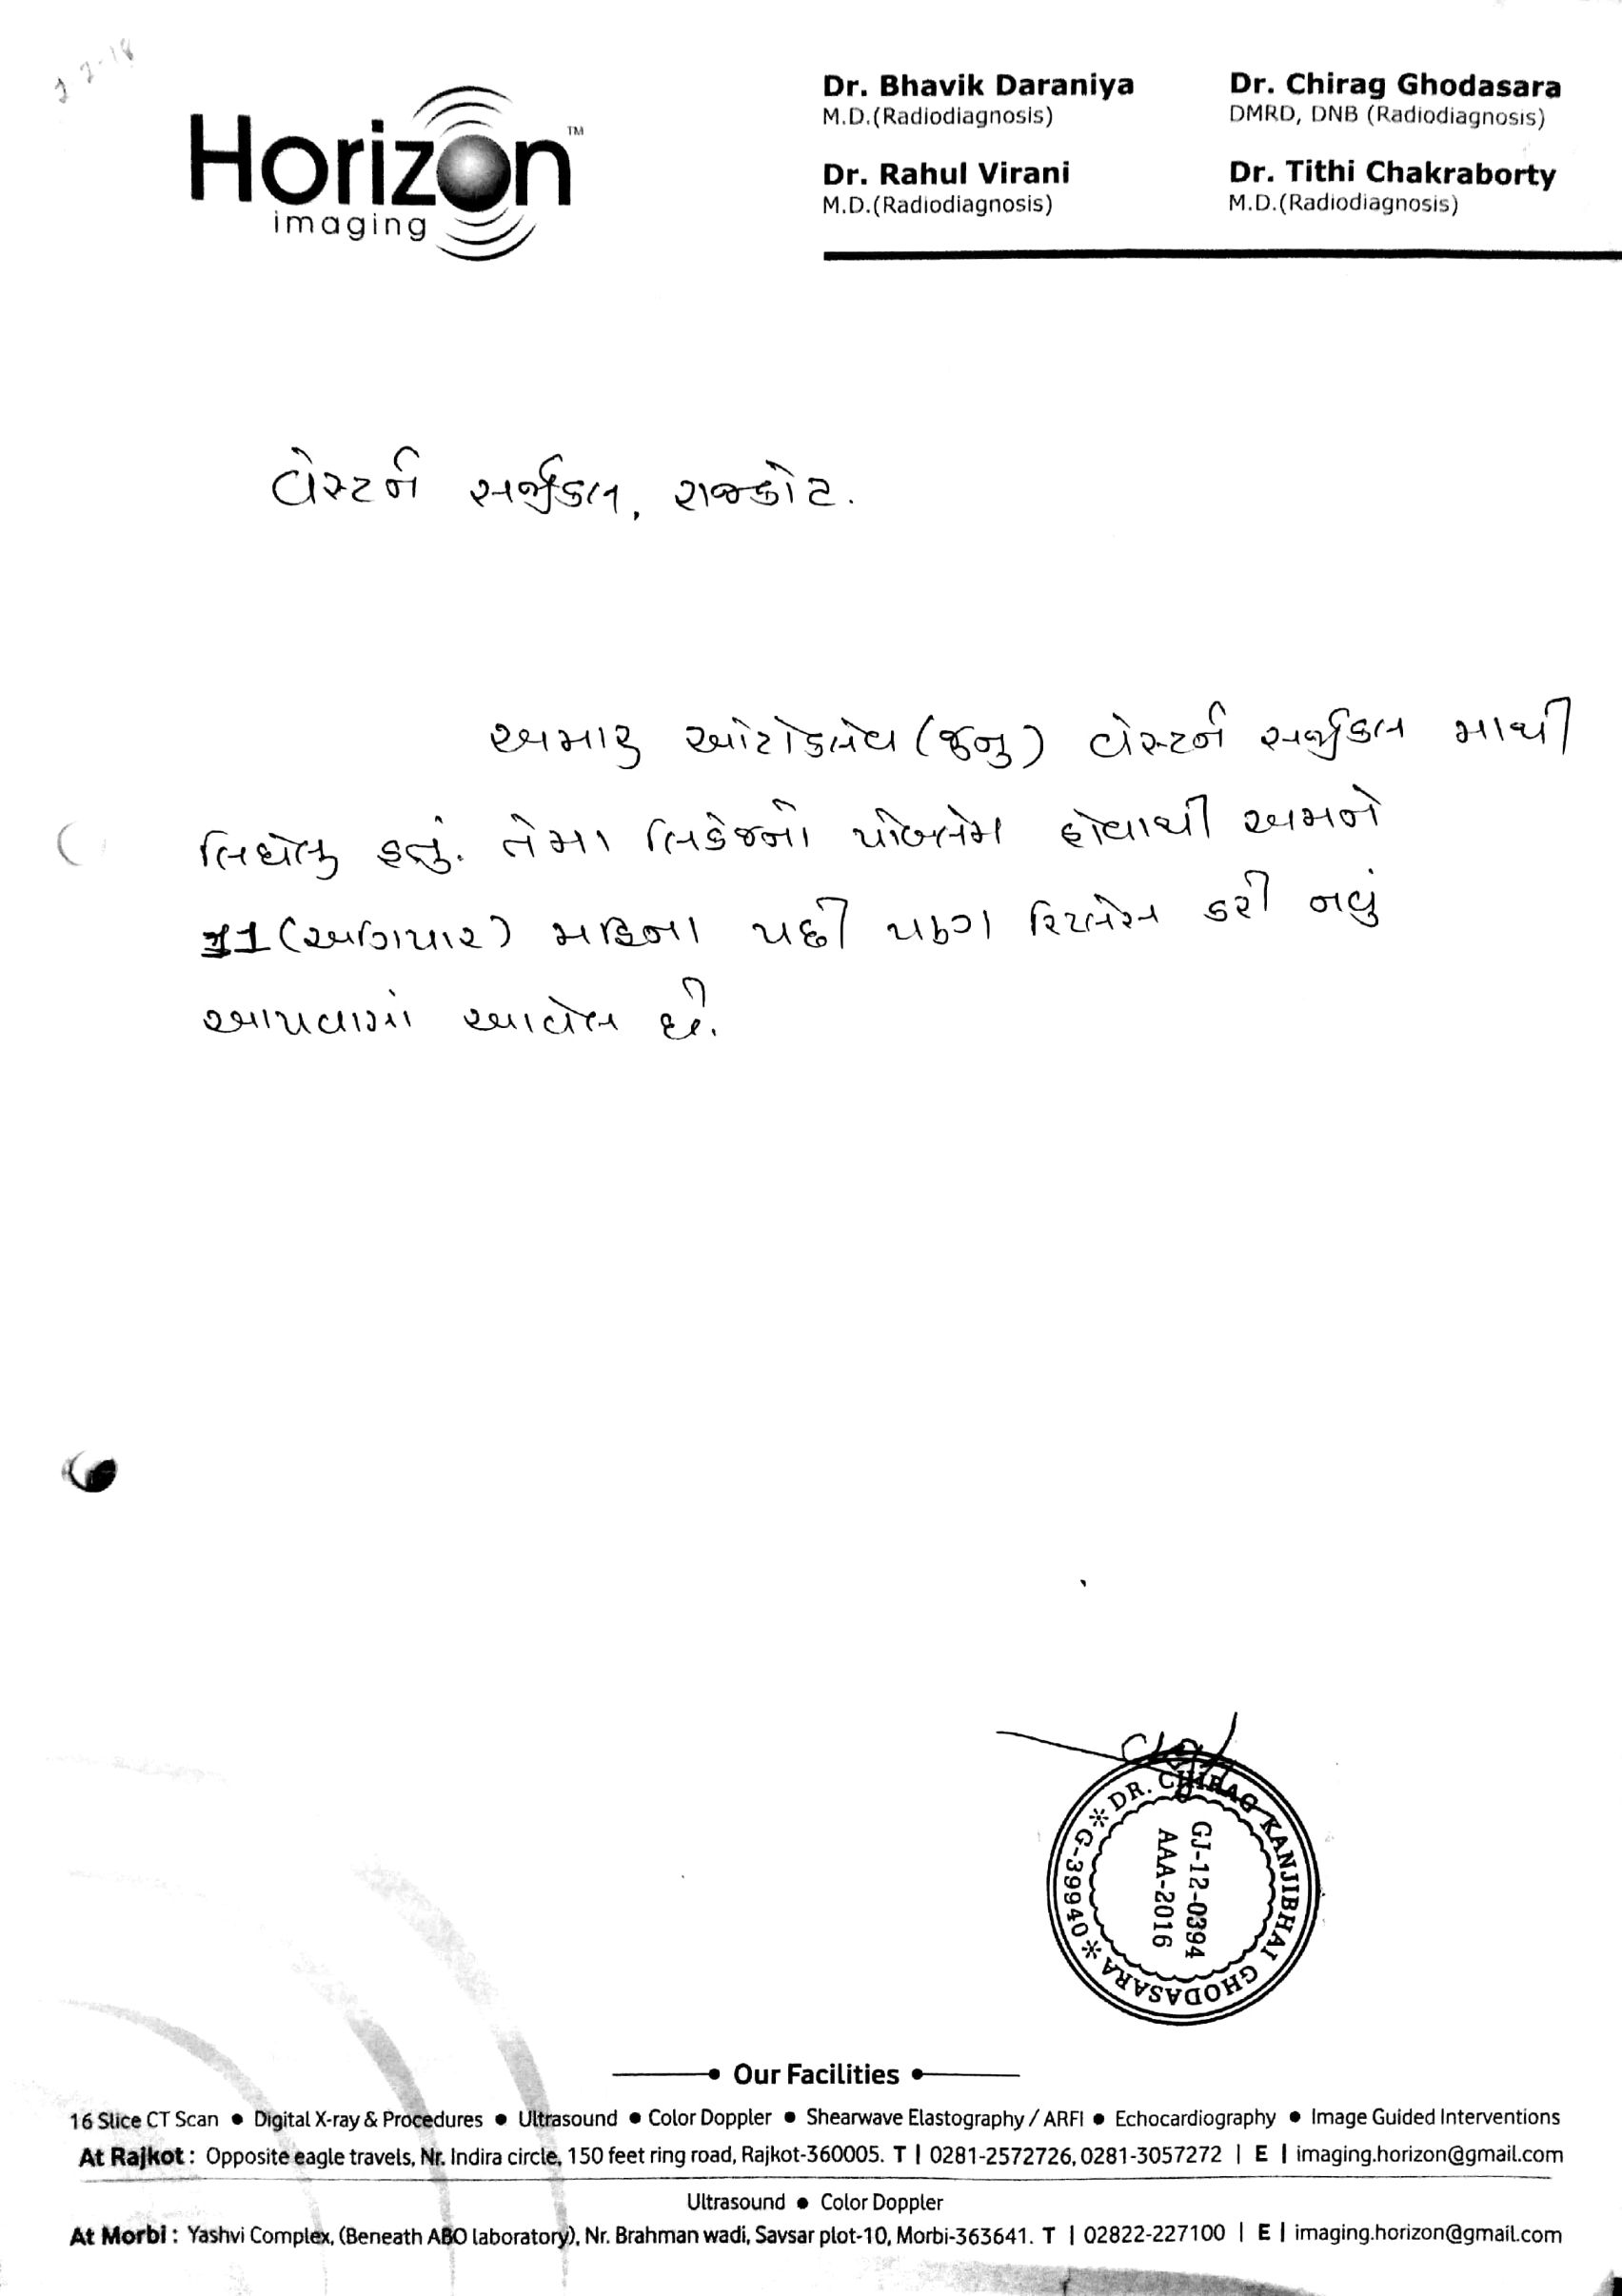 2-2-18
Horizon™
imaging
Dr. Bhavik Daraniya
M.D.(Radiodiagnosis)
Dr. Chirag Ghodasara
DMRD, DNB (Radiodiagnosis)
Dr. Rahul Virani
M.D.(Radiodiagnosis)
Dr. Tithi Chakraborty
M.D.(Radiodiagnosis)
વેસ્ટર્ન સર્જીકલ, રાજકોટ.
અમારુ ઓટોકલેવ (જુનુ) વેસ્ટર્ન સર્જીકલ માથી
લિધેલુ હતું. તેમા લિકેજનો પ્રોબલેમ હોવાથી અમને
11 (અગિયાર) મહિના પછી પણ રિપલેસ કરી નવું
આપવામાં આવેલ છે.
DR. CHIRAG KANJIBHAI GHODASARA * G-39940 *
GJ-12-0394
AAA-2016
Our Facilities
16 Slice CT Scan ● Digital X-ray & Procedures ● Ultrasound ● Color Doppler ● Shearwave Elastography / ARFI ● Echocardiography ● Image Guided Interventions
At Rajkot : Opposite eagle travels, Nr. Indira circle, 150 feet ring road, Rajkot-360005. T | 0281-2572726, 0281-3057272 | E | imaging.horizon@gmail.com
Ultrasound ● Color Doppler
At Morbi : Yashvi Complex, (Beneath ABO laboratory), Nr. Brahman wadi, Savsar plot-10, Morbi-363641. T | 02822-227100 | E | imaging.horizon@gmail.com